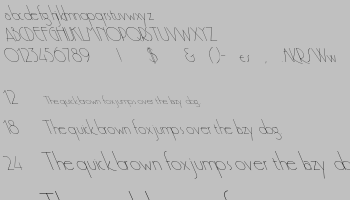 abcdefghijklmnopqrstuvwxyz
ABCDEFGHIJKLMNOPQRSTUVWXYZ
0123456789 ! $ & (,)-
12 The quick brown fox jumps over the lazy dog
18 The quick brown fox jumps over the lazy dog
24 The quick brown fox jumps over the lazy